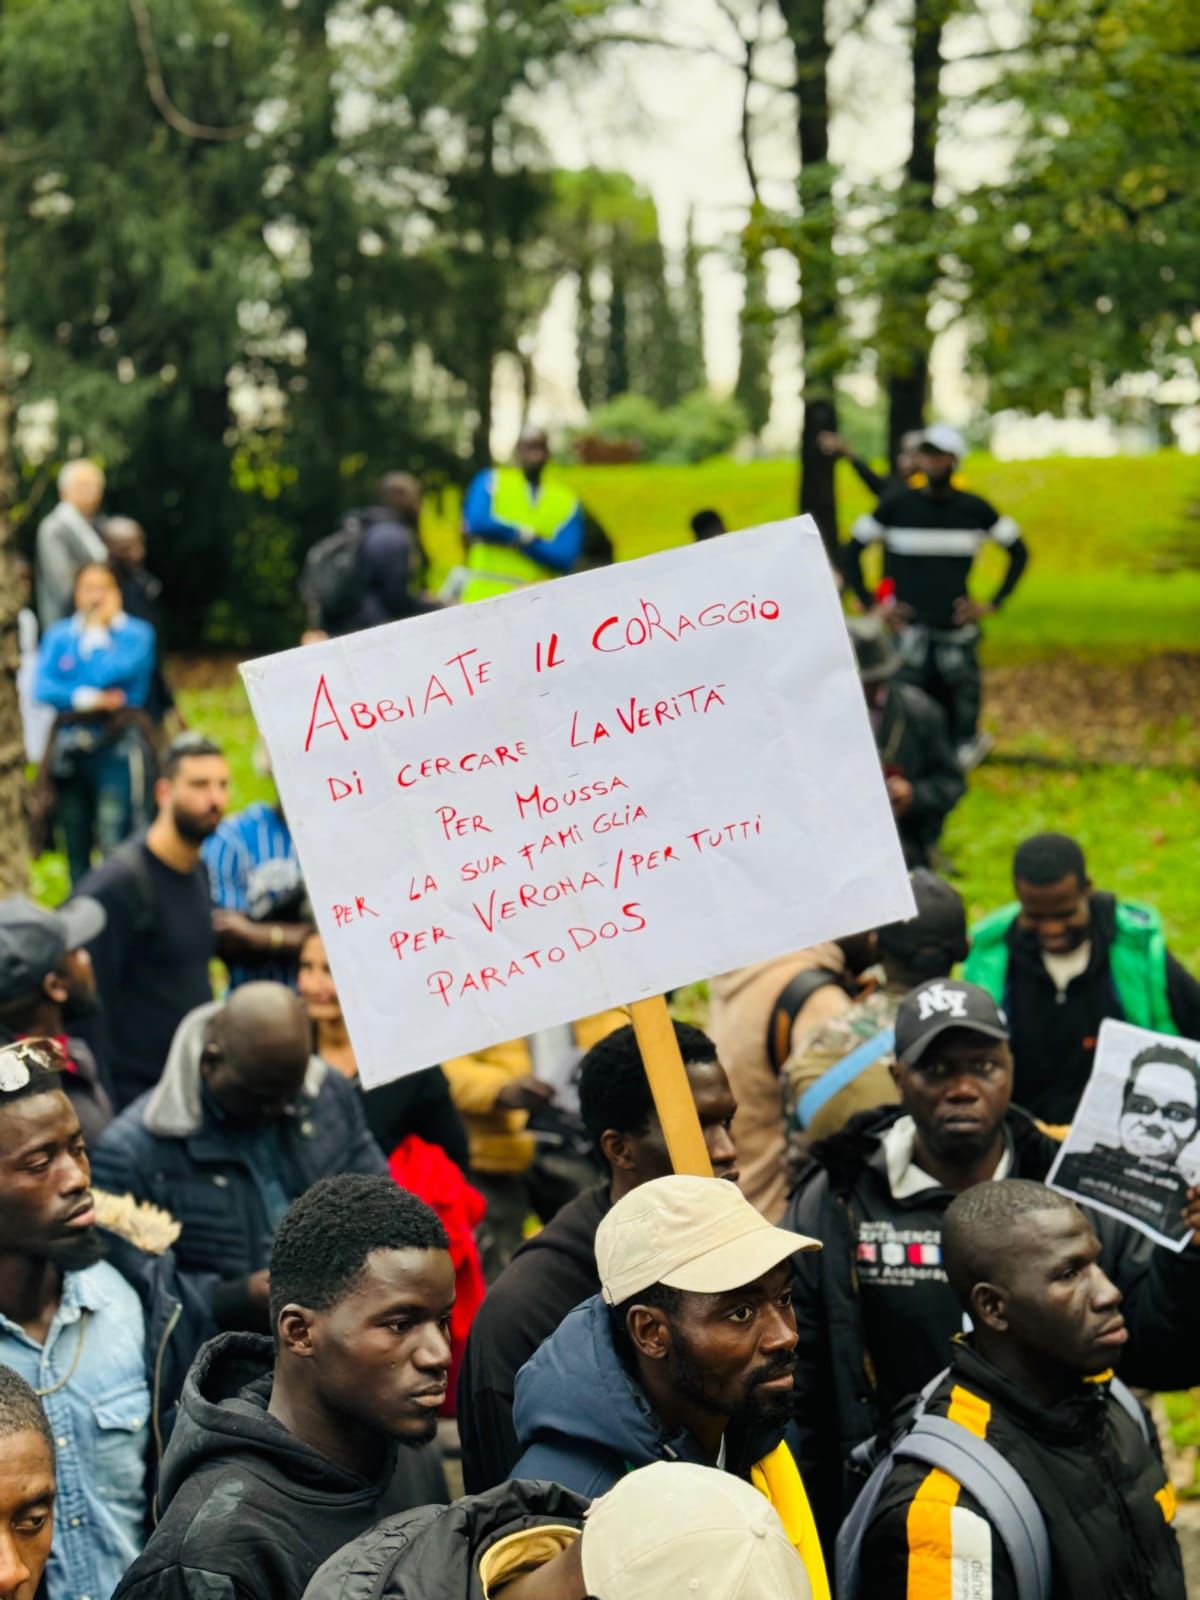 ABBIATE IL CORAGGIO
DI CERCARE LA VERITÀ
PER MOUSSA
PER LA SUA FAMIGLIA
PER VERONA/PER TUTTI
PARATODOS
NY
EXPERIENCE